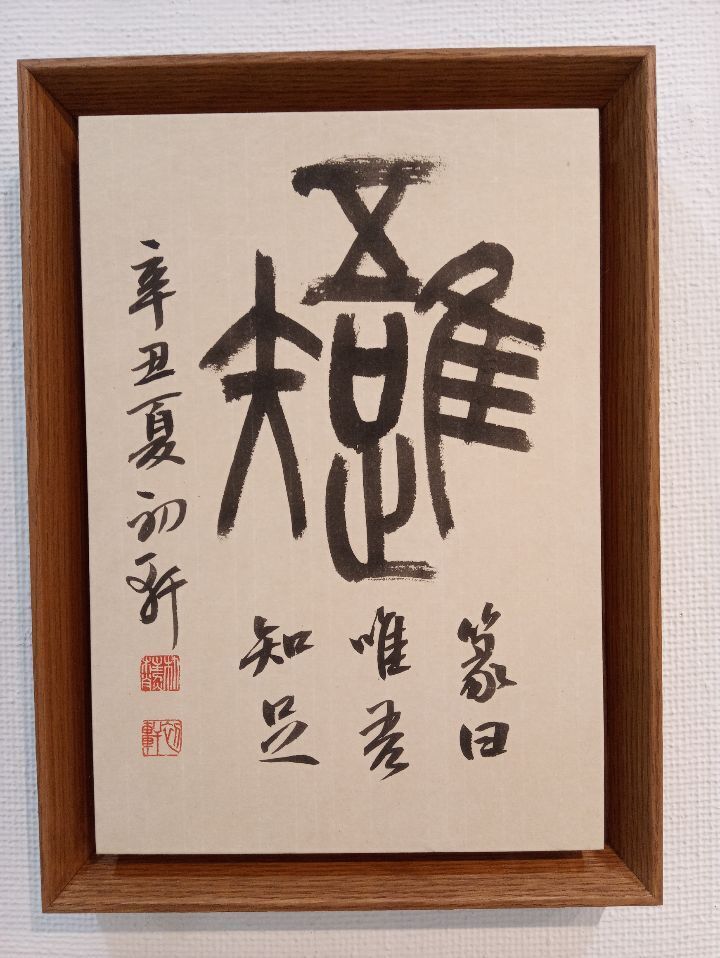 唯吾知足
篆曰
唯吾
知足
辛丑夏初軒
初軒